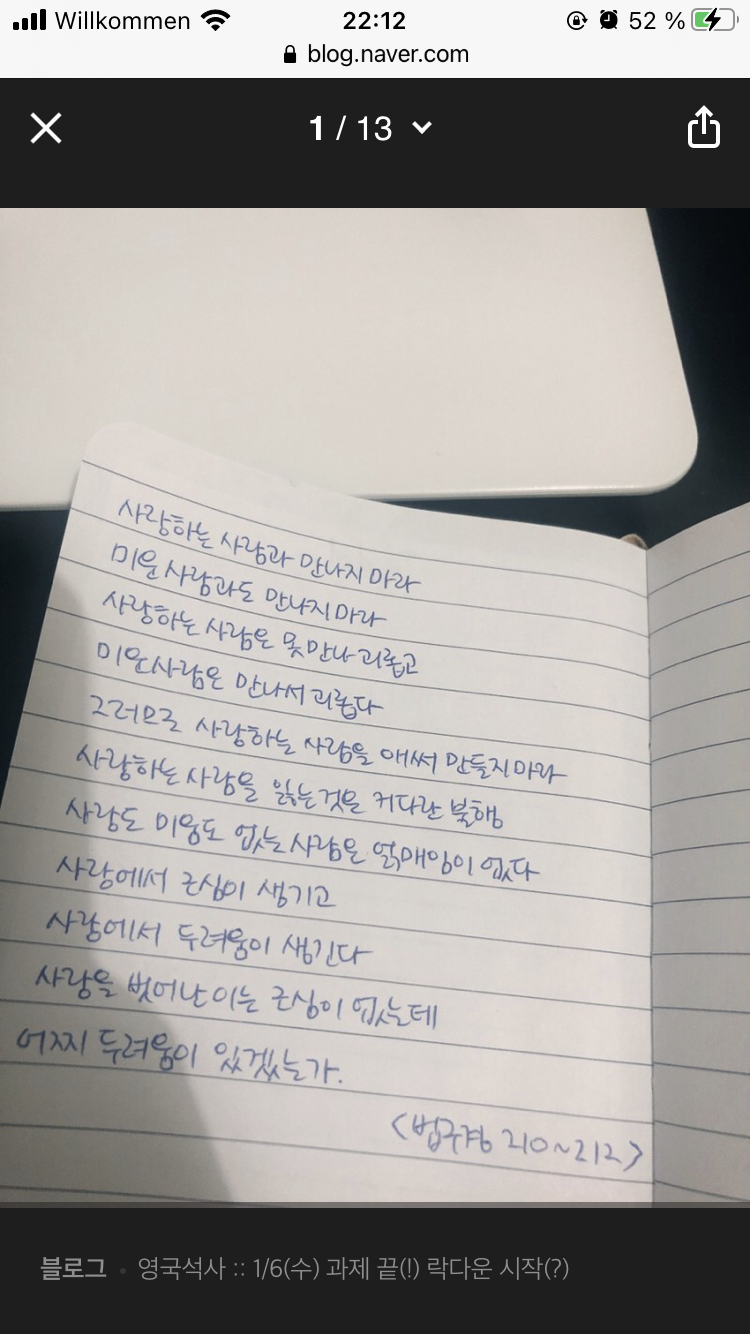 Willkommen 22:12 52 %
blog.naver.com
1 / 13
사랑하는 사람과 만나지 마라
미운 사람과도 만나지 마라
사랑하는 사람은 못 만나 괴롭고
미운 사람은 만나서 괴롭다
그러므로 사랑하는 사람을 애써 만들지 마라
사랑하는 사람을 잃는것은 커다란 불행
사랑도 미움도 없는 사람은 얽매임이 없다
사랑에서 근심이 생기고
사랑에서 두려움이 생긴다
사랑을 벗어난 이는 근심이 없는데
어찌 두려움이 있겠는가.
<법구경 210~212>
블로그 • 영국석사 :: 1/6(수) 과제 끝(!) 락다운 시작(?)